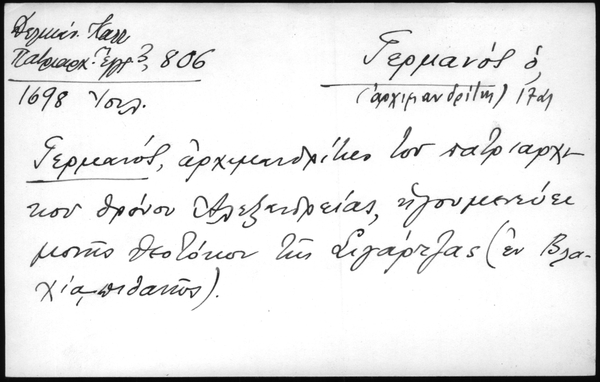 Δελικάν. Καλλ
Πατριαρχ. Ἔγγρ. 3, 806
1698 Ἰουλ.
Γερμανός ὁ,
(ἀρχιμανδρίτης) 17ος
Γερμανός, ἀρχιμανδρίτης τοῦ πατριαρχι-
κοῦ θρόνου Ἀλεξανδρείας, ἡγουμενεύει
μονῆς Θεοτόκου τῆς Σεγάρτζας (ἐν Βλα-
χίᾳ, πιθανῶς).